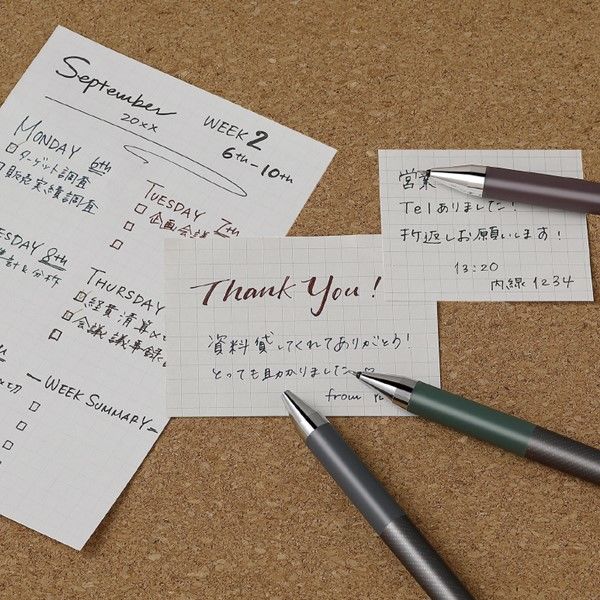 September
20xx
WEEK 2
6th-10th
MONDAY 6th
□ターゲット調査
販売実績調査
TUESDAY 7th
□企画会議
□
□
DAY 8th
集計&分析
THURSDAY
□経費清算
□会議議事録
□
-WEEK SUMMARY-
□
□
□
Thank You!
資料貸してくれてありがとう!
とっても助かりました
from
営業
Telありました!
折返しお願いします!
13:20
内線1234